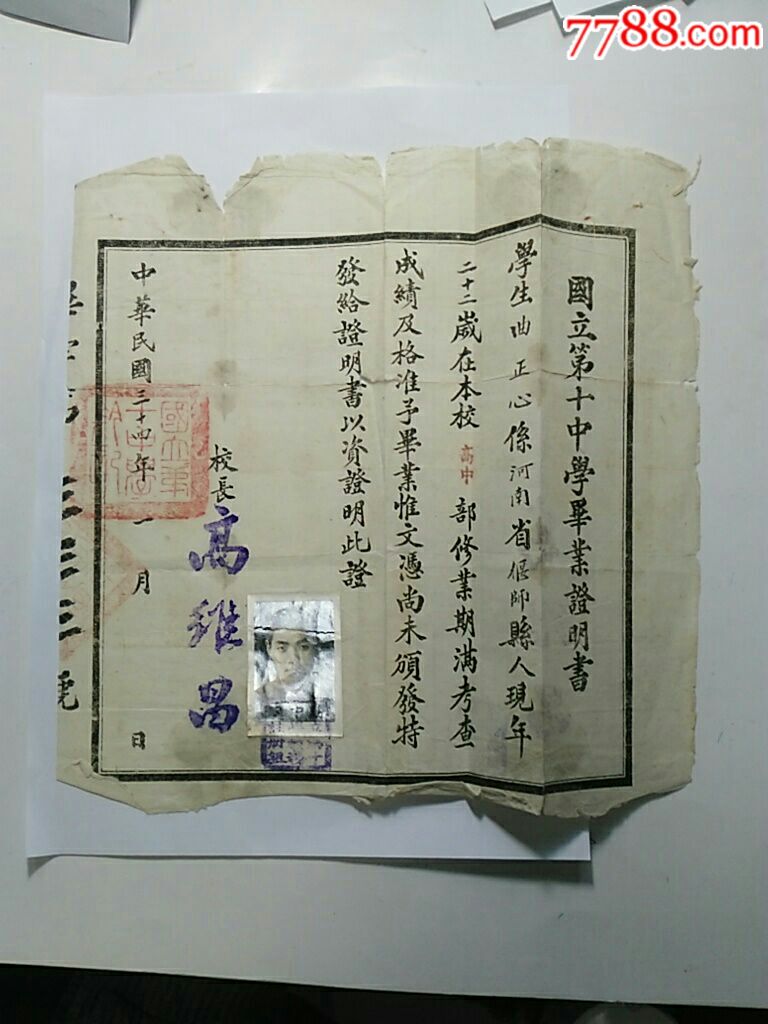 7788.com
國立第十中學畢業證明書
學生曲正心係河南省偃師縣人現年
二十二歲在本校高中部修業期滿考查
成績及格准予畢業惟文憑尚未頒發特
發給證明書以資證明此證
校長高維昌
中華民國三十四年一月 日